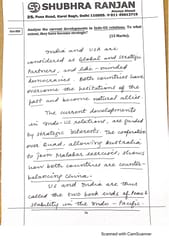 SHUBHRA RANJAN
25, Pusa Road, Karol Bagh, Delhi 110005.
Analyse the current developments in Indo-US relations. To what extent, they have become strategic?
(15 Marks)
India and USA are
considered as Global and strategic
Partners, and like-minded
democracies. Both countries have
overcome the hesitations of the
past and become natural allies.
The current developments
in Indo-US relations, are guided
by strategic interests. The conference
over Quad, allowing Australia
to join Malabar exercise, shows
how both countries are counter-
balancing China.
US and India are thus
called the two book ends of peace &
stability in the Indo-Pacific.
Scanned with CamScanner